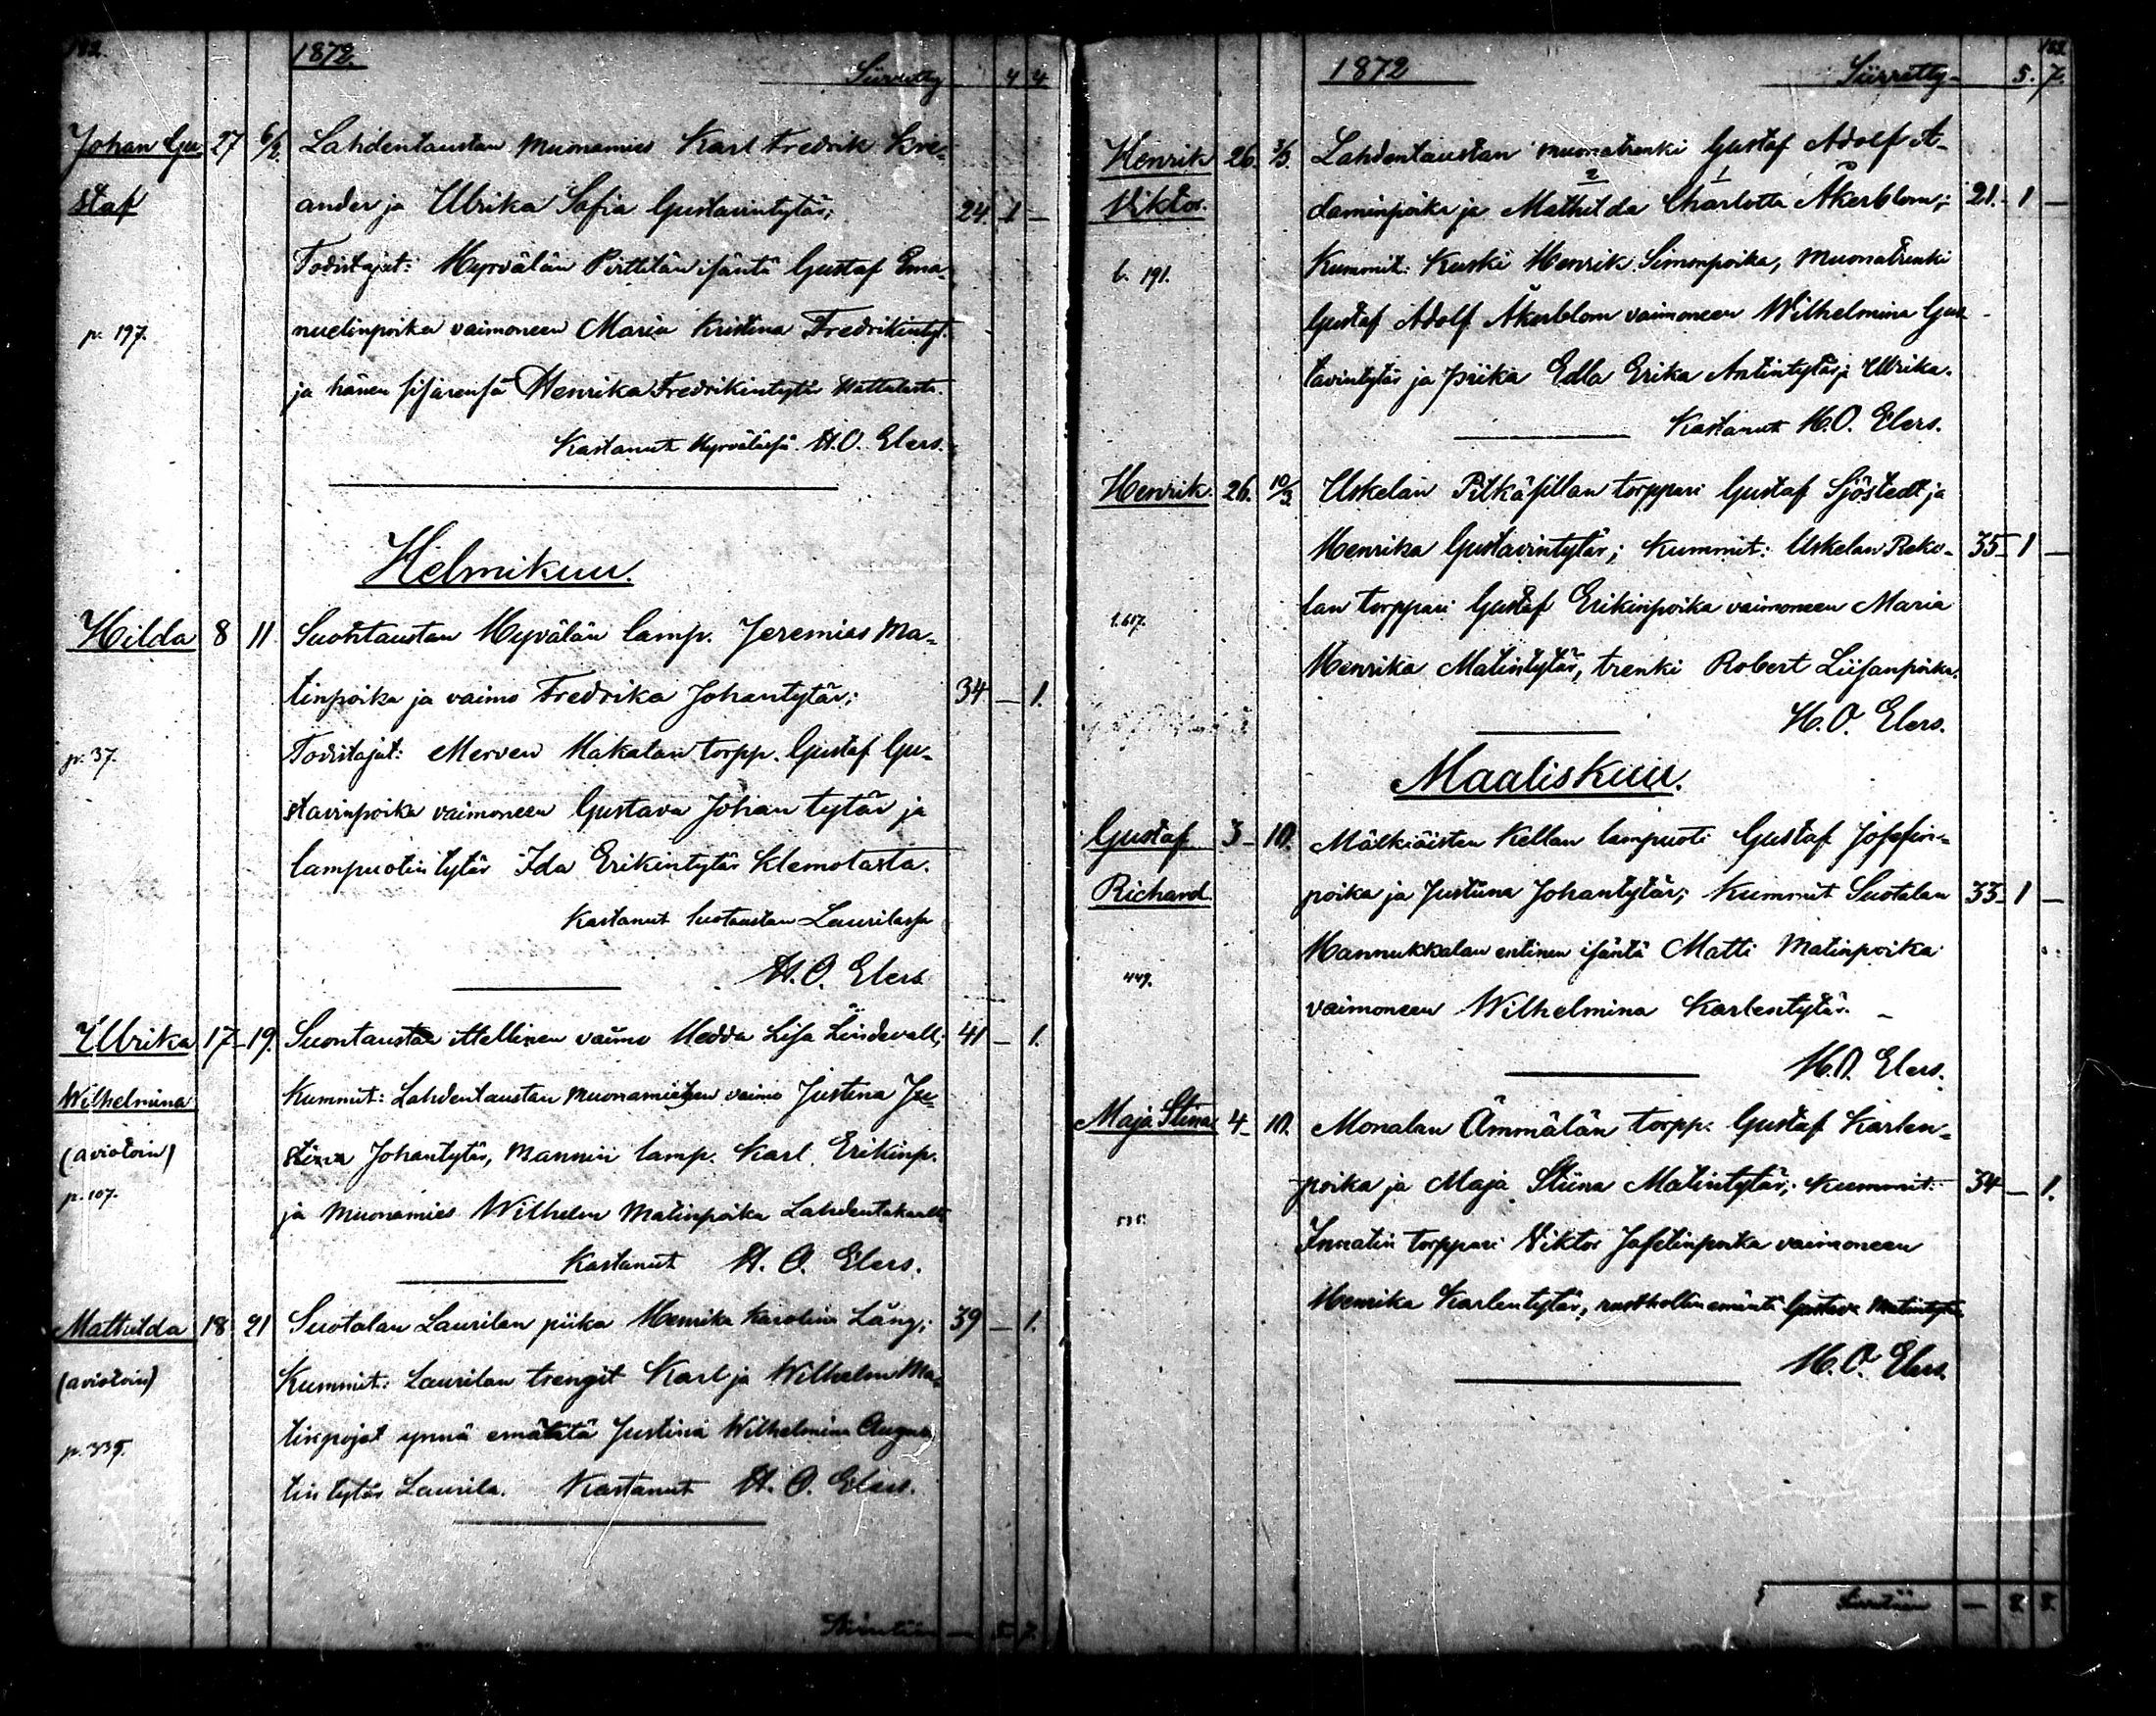 182.
1872.
Siirretty 4 4
Johan Gu- 27 6/2. Lahdentaustan muonamies Karl Fredrik Kre-
staf ander ja Ulrika Sofia Gustavintytär; 24. 1 —
Todistajat: Myrvälän Pirttilän isäntä Gustaf Ema-
p. 197. nuelinpoika vaimoneen Maria Kristina Fredrikintyt.
ja hänen sisärensä Henrika Fredrikintytär
Kastanut Myrvälässä H.O. Elers.
Helmikuu.
Hilda 8 11. Suontaustan Myvälän lamp. Jeremias Ma-
tinpoika ja vaimo Fredrika Johantytär; 34 — 1.
p. 37. Todistajat: Merven Makatan torpp. Gustaf Gu-
stavinpoika vaimoneen Gustava Johantytär ja
lampuotin tytär Ida Erikintytär Klemolasta.
Kastanut Suotaustan Laurilassa
H.O. Elers
Ulrika 17 – 19. Suontaustan itellinen vaimo Hedda Lisa Lindevall; 41 — 1.
Wilhelmina Kummit: Lahdentaustan muonamiehen vaimo Justina Ju-
(aviotoin) stina Johantytär, Mannin lamp. Karl Erikinp.
p. 107. ja muonamies Wilhelm Matinpoika
Kastanut H. O. Elers.
Mathilda 18 21 Suotalan Laurilan piika Henrika Karolina Lång; 39 — 1.
(aviotoin) Kummit: Laurilan trengit Karl ja Wilhelm Ma-
p. 335. tinpojat ynnä emäntä Justina Wilhelmina Augus
tin tytär Laurila. Kastanut H. O. Elers.
Siirretään — 5 7.
183.
1872
Siirretty- 5. 7.
Henrik 26. 3/3. Lahdentaustan muonatrenki Gustaf Adolf A-
Viktor. daminpoika ja Mathilda Charlotta Åkerblom; 21. 1 —
b. 191. Kummit: Kuski Henrik Simonpoika, muonatrenki
Gustaf Adolf Åkerblom vaimoneen Wilhelmina Gus-
tavintytär ja piika Edla Erika Antintytär; Ulrika.
Kastanut H.O. Elers.
Henrik. 26. 10/3 Uskelan Pitkäsillan torppari Gustaf Sjöstedt ja
Henrika Gustavintytär; Kummit: Uskelan Reko- 35 1 —
1.617. lan torppari Gustaf Erikinpoika vaimoneen Maria
Henrika Matintytär, trenki Robert Liisanpoika.
H.O. Elers.
Maaliskuu.
Gustaf 3 – 10. Mälkiäisten Kellan lampuoti Gustaf Josefin-
Richard. poika ja Justiina Johantytär; Kummit Suotalan 33 1 —
449. Mannukkalan entinen isäntä Matti Matinpoika
vaimoneen Wilhelmina Karlentytär. –
H.O. Elers.
Maja Stina 4 – 10. Monalan Ämmälän torpp. Gustaf Karlen-
poika ja Maja Stiina Matintytär; Kummit: 34 — 1.
535. torppari Viktor Jafetinpoika vaimoneen
Henrika Karlentytär, rusthollin emäntä Gustava Matintytär
H.O. Elers.
Siirretään — 8. 8.